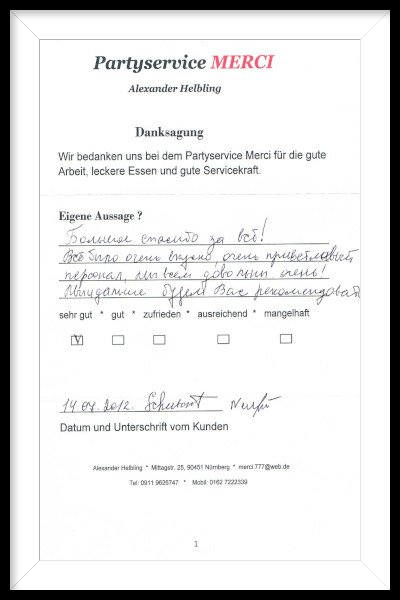 Partyservice MERCI
Alexander Helbling
Danksagung
Wir bedanken uns bei dem Partyservice Merci für die gute
Arbeit, leckere Essen und gute Servicekraft.
Eigene Aussage ?
Большое спасибо за всё!
Всё было очень вкусно, очень приветливый
персонал, мы всем довольны очень!
будем Вас рекомендовать
sehr gut * gut * zufrieden * ausreichend * mangelhaft
V
14.07.2012.
Datum und Unterschrift vom Kunden
Alexander Helbling * Mittagstr. 25, 90451 Nürnberg * merci.777@web.de
Tel: 0911 9626747 * Mobil: 0162 7222339
1